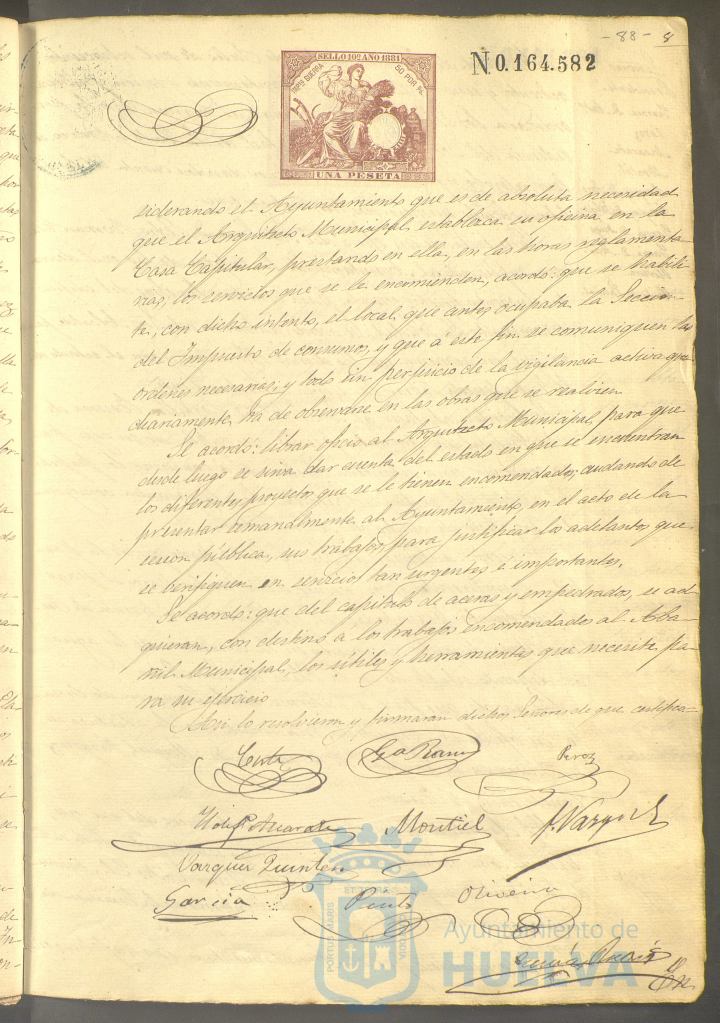 - 88 - 8
SELLO 10º AÑO 1881
IMPto GUERRA 50 POR %
UNA PESETA
N0.164.582
siderando el Ayuntamiento que es de absoluta necesidad
que el Arquitecto Municipal establezca su oficina en la
Casa Capitular, prestando en ella, en las horas reglamenta
rias, los servicios que se le encomienden, acordó: que se habili-
te, con dicho intento, el local que antes ocupaba la Sección
del Impuesto de consumos, y que á este fin se comuniquen las
ordenes necesarias; y todo sin perjuicio de la vigilancia activa que
diariamente ha de observarse en las obras que se realicen
Se acordó: librar oficio al Arquitecto Municipal, para que
desde luego se sirva dar cuenta del estado en que se encuentran
los diferentes proyectos que se le tienen encomendados, cuidando de
presentar semanalmente al Ayuntamiento, en el acto de la
sesión pública, sus trabajos para justificar los adelantos que
se verifiquen en servicios tan urgentes é importantes.
Se acordó: que del capitulo de aceras y empedrados, se ad
quieran, con destino a los trabajos encomendados al Alba
ñil Municipal, los útiles y herramientas que necesite pa
ra su ejercicio
Asi lo resolvieron y firmaran dichos Señores de que certifica-
Garcia Ramos Perez
Montiel J. Vazquez
Vazquez Quintero
García Pinto Oliveira
PORTUS MARIS ET TERRAE CUSTODIA
Ayuntamiento de
HUELVA